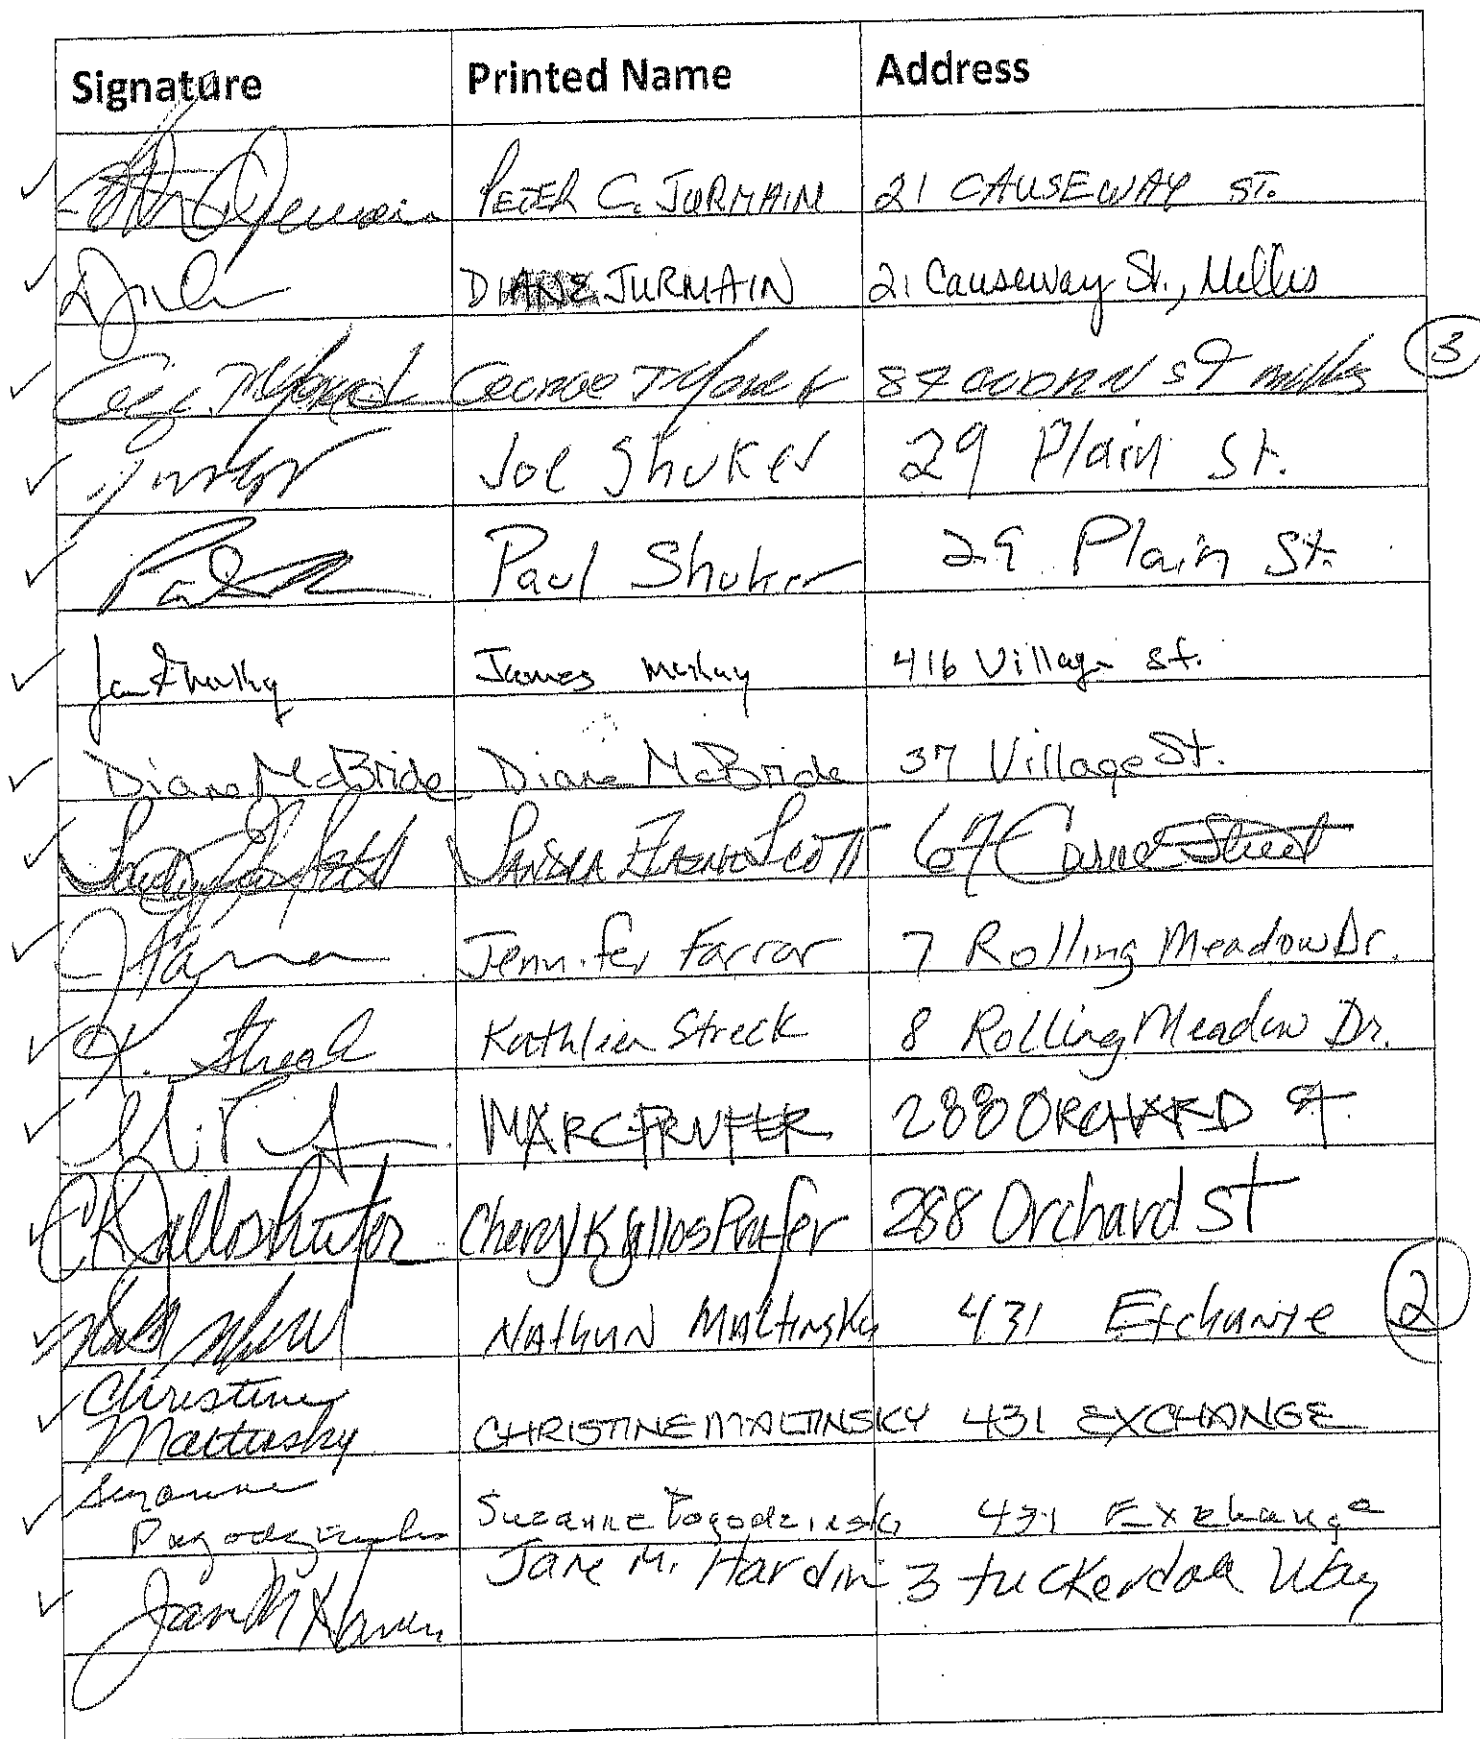 Signature Printed Name Address
PETER C. JURMAIN 21 CAUSEWAY ST.
DIANE JURMAIN 21 Causeway St., Millis
GEORGE T 87 ST Millis 3
Joe Shuker 29 Plain St.
Paul Shuker 29 Plain St.
James McKay 416 Village St.
Diane McBride Diane McBride 37 Village St.
SANDRA SCOTT 67 Street
Jennifer Farrar 7 Rolling Meadow Dr.
K. Streck Kathleen Streck 8 Rolling Meadow Dr.
MARC PRUFER 288 ORCHARD ST
CKyllosPrufer Cheryl Kyllos Prufer 288 Orchard St
NATHAN MALTINSKY 431 Exchange 2
Christine
Maltinsky CHRISTINE MALTINSKY 431 EXCHANGE
Suzanne
Pogodzinski Suzanne Pogodzinski 431 Exchange
Jane M. Hardin 3 Tuckerdale Way